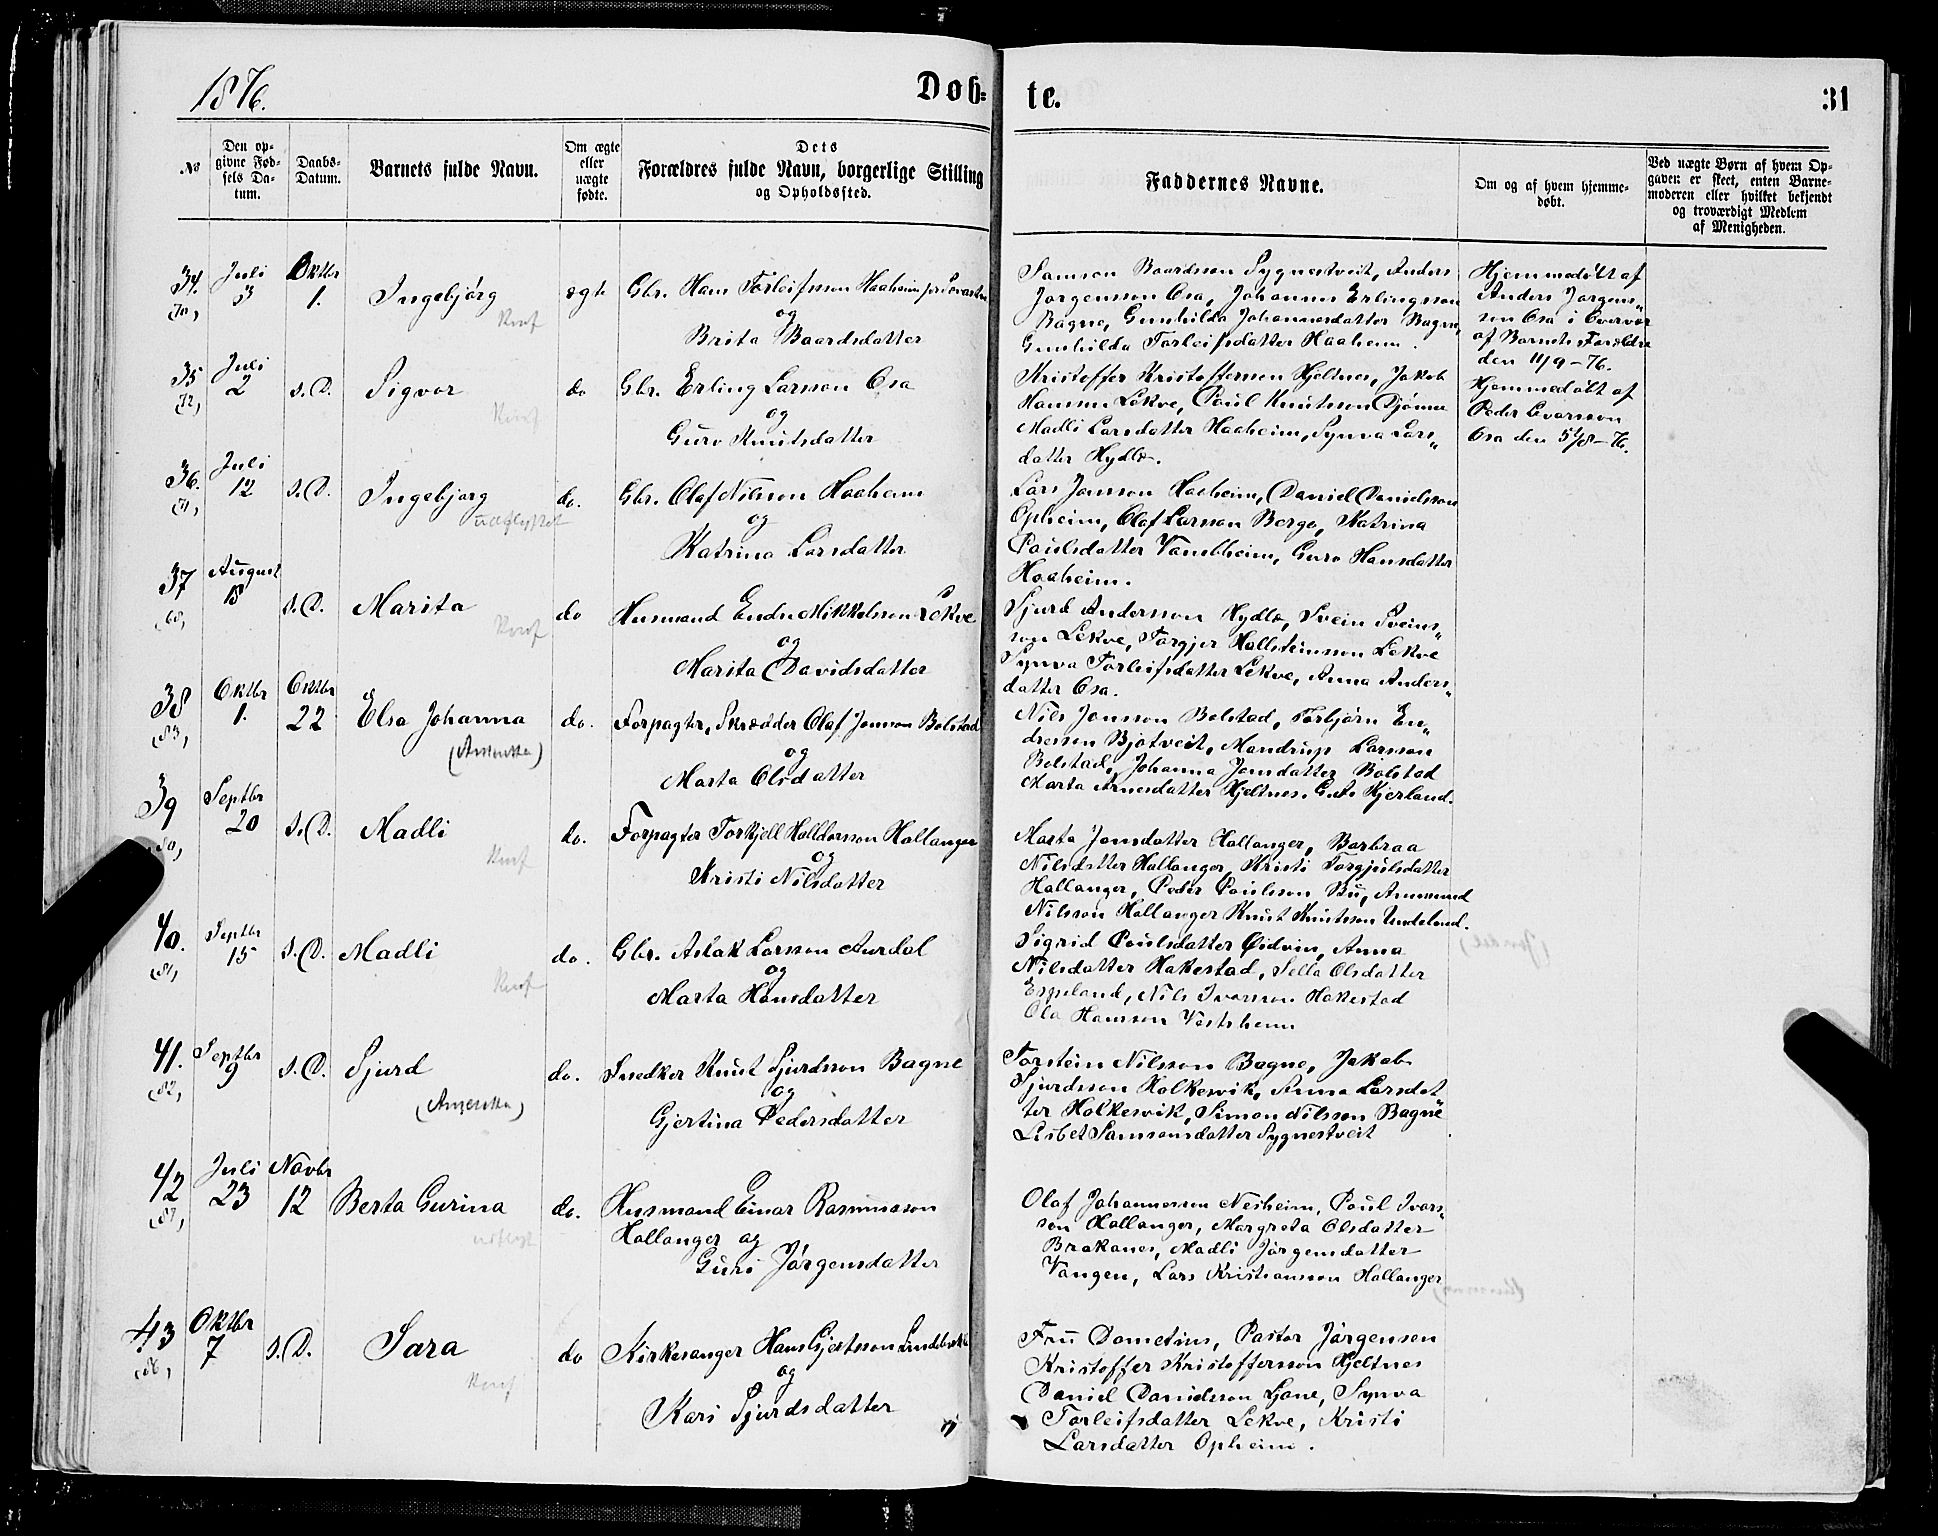 1876.
Døb=
te.
31
No
Den op-
givne Fød-
sels Da-
tum.
Daabs-
Datum.
Barnets fulde Navn.
Om ægte
eller
uægte
fødte.
Dets
Forældres fulde Navn, borgerlige Stilling
og Opholdssted.
Faddernes Navne.
Om og af hvem hjemme-
døbt.
Ved uægte Børn af hvem Op-
gaven er skeet, enten Barne-
moderen eller hvilket bekjendt
og troværdigt Medlem
af Menigheden.
34. Juli Oktbr
(70,) 3 1. Ingebjørg ægte Gbr. Hans Torleifsson Haaheim
Konf
og
Brita Baardsdatter
Samson Baardsson Sygnestveit, Anders
Jørgensson Osa, Johannes Erlingsson
Bagne, Gunhilda Johannesdatter Bagne,
Gunhilda Torleifsdatter Haaheim.
Hjemmedøbt af
Anders Jørgens„
son Osa i Overvær
af Barnets Forældre
den 11/9-76.
35 Juli
(72,) 2 s.D. Sigvor do Gbr. Erling Larsson Osa
Konf
og
Guro Knutsdatter
Kristoffer Kristoffersson Hjeltnes, Jakob
Hansson Lekve, Paul Knutsson Djønne
Madli Larsdatter Haaheim, Synva Lars„
datter Hydle.
Hjemmedøbt af
Peder Evarsson
Osa den 5/8-76.
36. Juli
(71,) 12 s.D. Ingebjørg do. Gbr. Olaf Nilsson Haaheim
udflyttet
og
Katrina Larsdatter
Lars Jonsson Haaheim, Daniel Danielsson
Opheim, Olaf Larsson Berge, Katrina
Paulsdatter Vambheim, Guro Hansdatter
Haaheim.
37 August
(68,) 18 s.D. Marita do Husmand Endre Mikkelsson Lekve
Konf
og
Marita Davidsdatter
Sjurd Andersson Hydle, Svein Sveins„
son Lekve, Torgjer Hallsteinsson Lekve
Synva Torleifsdatter Lekve, Anna Anders„
datter Osa.
38 Oktbr Oktbr
(83,) 1. 22 Elsa Johanna do. Forpagter, Skrædder Olaf Jonsson Bolstad
(Amerika)
og
Marta Olsdatter
Nils Jonsson Bolstad, Torbjørn En„
dresson Bjotveit, Mandrup Larsson
Bolstad, Johanna Jonsdatter Bolstad
Marta Arnesdatter Hjeltnes. Kjerland.
39 Septbr
(80,) 20 s.D. Madli do. Forpagter Torkjell Halldorsson Hallanger
Konf
og
Kristi Nilsdatter
Marta Jonsdatter Hallanger, Barbraa
Nilsdatter Hallanger, Kristi Torgjulsdatter
Hallanger, Peder Paulsson Bu, Ammund
Nilsson Hallanger Knut Knutsson Undeland.
40. Septbr
(81,) 15 s.D. Madli do. Gbr. Aslak Larsson Aurdal
Konf
og
Marta Hansdatter
Sigrid Paulsdatter Øidvin, Anna
Nilsdatter Hakestad, Sella Olsdatter
Espeland, Nils Ivarsson Hakestad
Ola Hansson Vestrheim
41. Septbr
(82,) 9 s.D. Sjurd do. Snedker Knut Sjurdsson Bagne
(Amerika)
og
Gjertina Pedersdatter
Torstein Nilsson Bagne, Jakob
Sjurdsson Holkesvik, Anna Larsdat„
ter Holkesvik, Simon Nilsson Bagne
Lisbet Samsonsdatter Sygnestveit
42 Juli Novbr
(87,) 23 12 Berta Gurina do. Husmand Einar Rasmusson
udflyt
Hallanger og
Guri Jørgensdatter
Olaf Johannesson Nesheim, Paul Ivars„
son Hallanger, Margreta Olsdatter
Brakanes, Madli Jørgensdatter
Vangen, Lars Kristiansson Hallanger
43 Oktbr
(86,) 7 s.D. Sara do Kirkesanger Hans Gjertsson Lindebrekke
Konf
og
Kari Sjurdsdatter
Fru Dometius, Pastor Jørgensen
Kristoffer Kristoffersson Hjeltnes
Daniel Danielsson Ljone, Synva
Torleifsdatter Lekve, Kristi
Larsdatter Opheim.